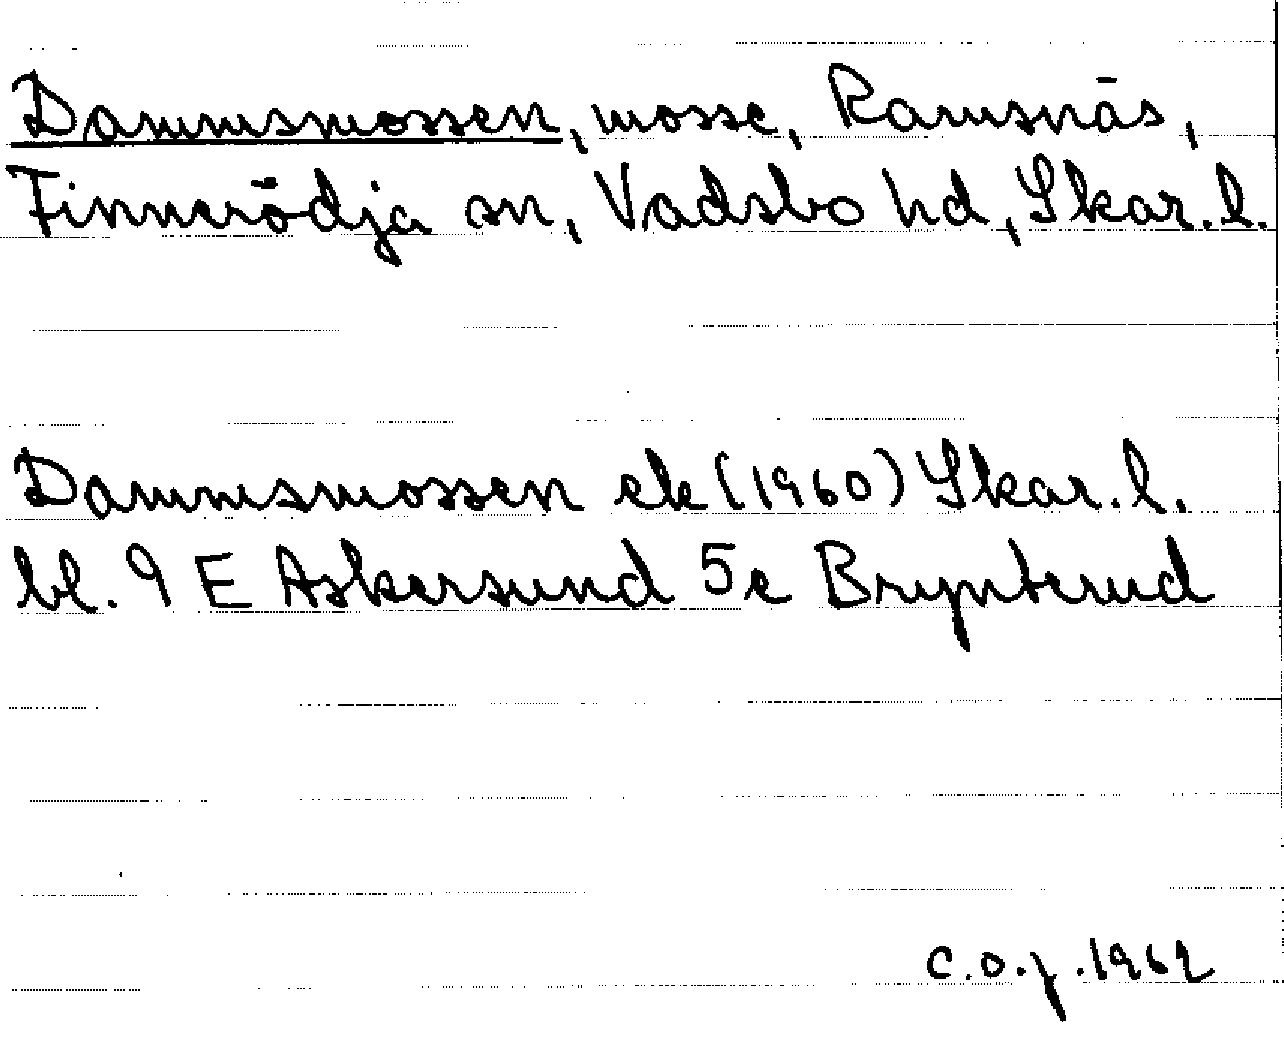 Dammsmossen, mosse, Ramsnäs,
Finnerödja sn, Vadsbo hd, Skar. l.
Dammsmossen ek (1960) Skar. l.
bl. 9 E Askersund 5 e Brynterud
C.O.J. 1962